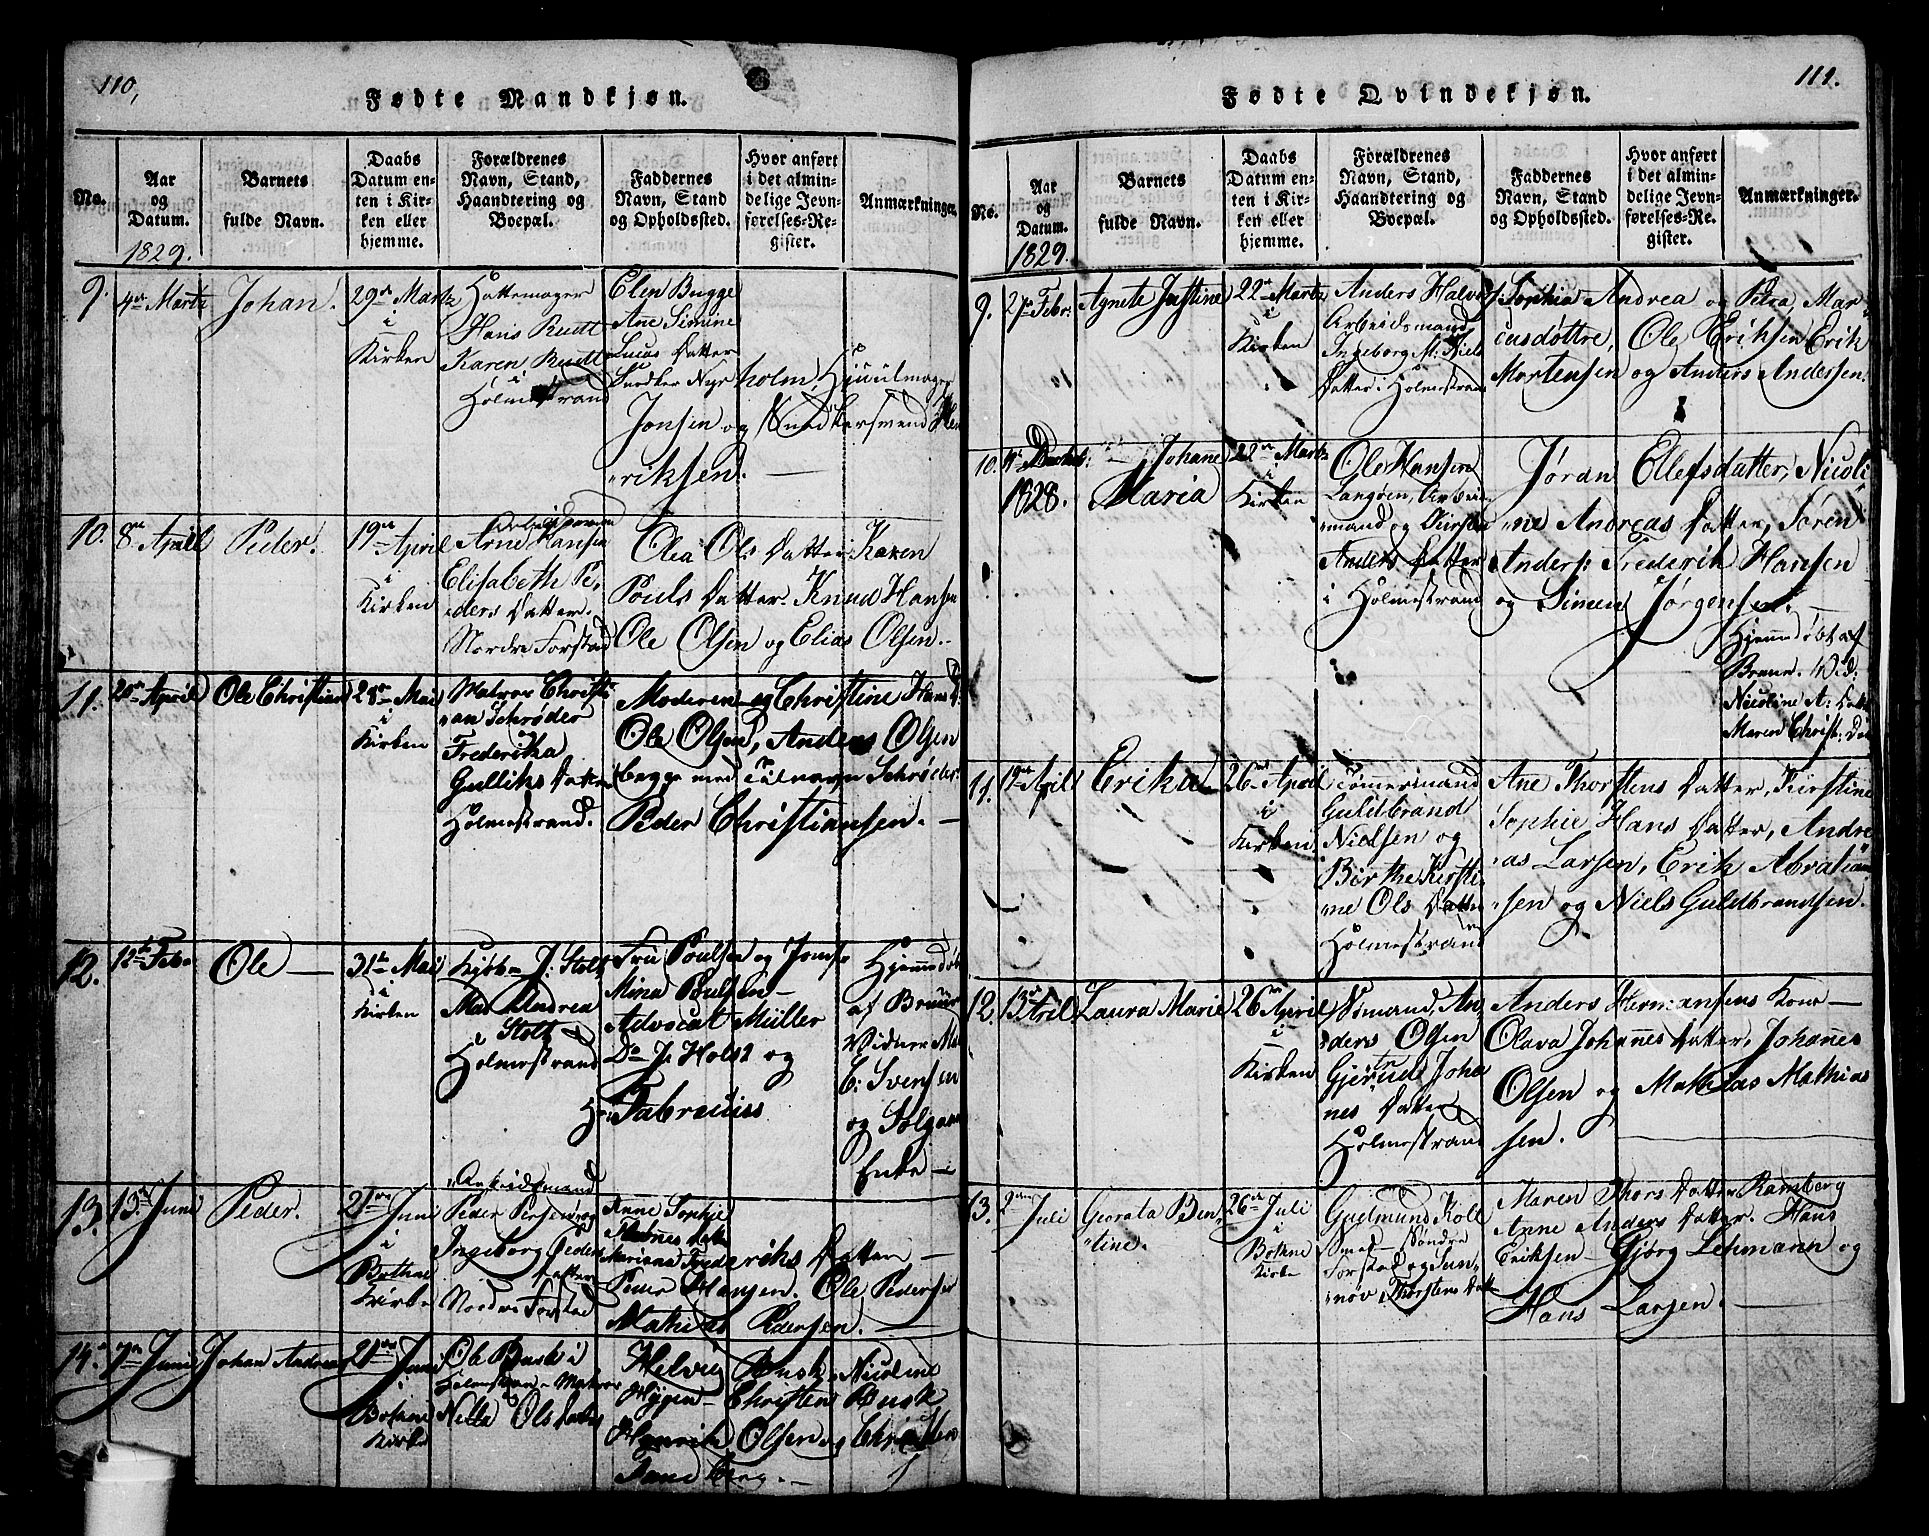 110,
Fødte Mandkjøn.
No.
Aar
og
Datum.
1829.
Barnets
fulde Navn.
Daabs
Datum en-
ten i Kir-
ken eller
hjemme.
Forældrenes
Navn, Stand,
Haandtering og
Boepæl.
Faddernes
Navn, Stand
og Opholdssted.
Hvor anført
i det almin-
delige Jevn-
førelses-Re-
gister.
Anmærkninger.
9.
4de Martz
Johan.
29de Martz
i
Kirken
Hattemager
Hans Ruitt
Karen Ruitt
i
Holmestrand
Elen Bugge
Ane Simine
Lucas Datter
Snedker Nyrholm, Hjuulmager
Jonsen og Snedkersvend Hen
riksen.
10.
8de April
Peder.
19de April
i
Kirken
Arne Hansen
Elisabeth Pe-
ders Datter.
Nordre Forstad
Olea Ols Datter Karen
Pouls Datter. Knud Hansen
Ole Olsen og Elias Olsen.
11.
20de April
Ole Christian
28de Mai
i
Kirken
Matros Christi
an Schrøder
Frederikka
Gulliks Datter
Holmestrand.
Moderen og Christine Hans D:
Ole Olsen, Anders Olsen
begge med Tilnavn Schrøder.
Peder Christiansen.
12.
12te Feb.
Ole
31te Mai
i
Kirken
Kjøbm J: Stolt
Mad Andrea
Stolt
i
Holmestrand
Fru Poulsen og Jomfr
Mina Poulsen
Advocat Müller
Do J. Holst og
Hr: Fabrcuiss
Hjemmedøbt
af
Vidner
C: Svensen
og
Enke
13.
13de Juni
Peder.
21de Juni
i
Bothne
Kirke
Arbeidsmand
Peder Persen og
Ingeborg Peders
Datter
Nordre Forstad
Anne Sophie
Mariane Frederiks Datter
Peder Hansen. Ole Pedersen
Mathias Pedersen.
14.
7de Juni
Johan Andreas
21de Juni
i
Bothne
Kirke
Ole Busk i
Holmestrand Matros
Nilla Ols Datter
Helvig Busk Nicoline
Hygen Christen Busk
Henrik Olsen og Christen
111.
Fødte Qvindekjøn.
No.
Aar
og
Datum.
1829.
Barnets
fulde Navn.
Daabs
Datum en-
ten i Kir-
ken eller
hjemme.
Forældrenes
Navn, Stand,
Haandtering og
Boepæl.
Faddernes
Navn, Stand
og Opholdssted.
Hvor anført
i det almin-
delige Jevn-
førelses-Re-
gister.
Anmærkninger.
9.
27de Febr:
Agnete Justine
22de Martz
i
Kirken
Anders Halvors
Arbeidsmand
Ingeborg M: Niels
Datter i Holmestrand
Sophia Andrea og Petra Mar-
cusdøttre, Ole Eriksen Erik
Mortensen og Anders Andersen.
10.
1828.
Johane
Maria
22de Martz
i
Kirken
Ole Hansen
Langøen, Arbeids
mand og Kirstine
Anders Datter
i Holmestrand
Jøran Ellefsdatter, Nicoli
ne Andreas Datter, Søren
Anders: Frederik Hansen
og Simen Jørgensen.
Hjemmedøbt af
Vid:
Nicoline A: Datt
Maren Christ: Dat
11.
19de April
Erika
26de April
i
Kirken
Tømmermand
Guldbrand
Nielsen og
Birthe Kirsti
ne Ols Datter
Holmestrand
Ane Thorstens Datter, Kirstine
Sophie Hans Datter, Andre
as Larsen, Erik Abraham
sen og Niels Guldbrandsen.
12.
13de April
Laura Marie
26de April
i
Kirken
Sømand, An
ders Olsen
Gjertrud Joha
nes Datter
Holmestrand
Anders Hermansens Kone
Olava Johannes Datter, Johannes
Olsen og Mathias Mathias
sen.
13.
2den Juli
Georata Ben
tine.
26de Juli
i
Bothne
Kirke
Gudmund Roll
Smed Søndre
Forstad og Sun
nøv Thorstens Datt
Maren Thors Datter Ramberg
Anne Anders Datter. Hans
Eriksen Gjørg Lehmann og
Hans Larsen.